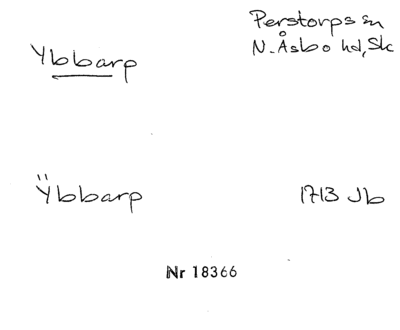 Ybbarp
Perstorps sn
N. Åsbo hd, Sk
Ÿbbarp
1713 Jb
Nr 18366